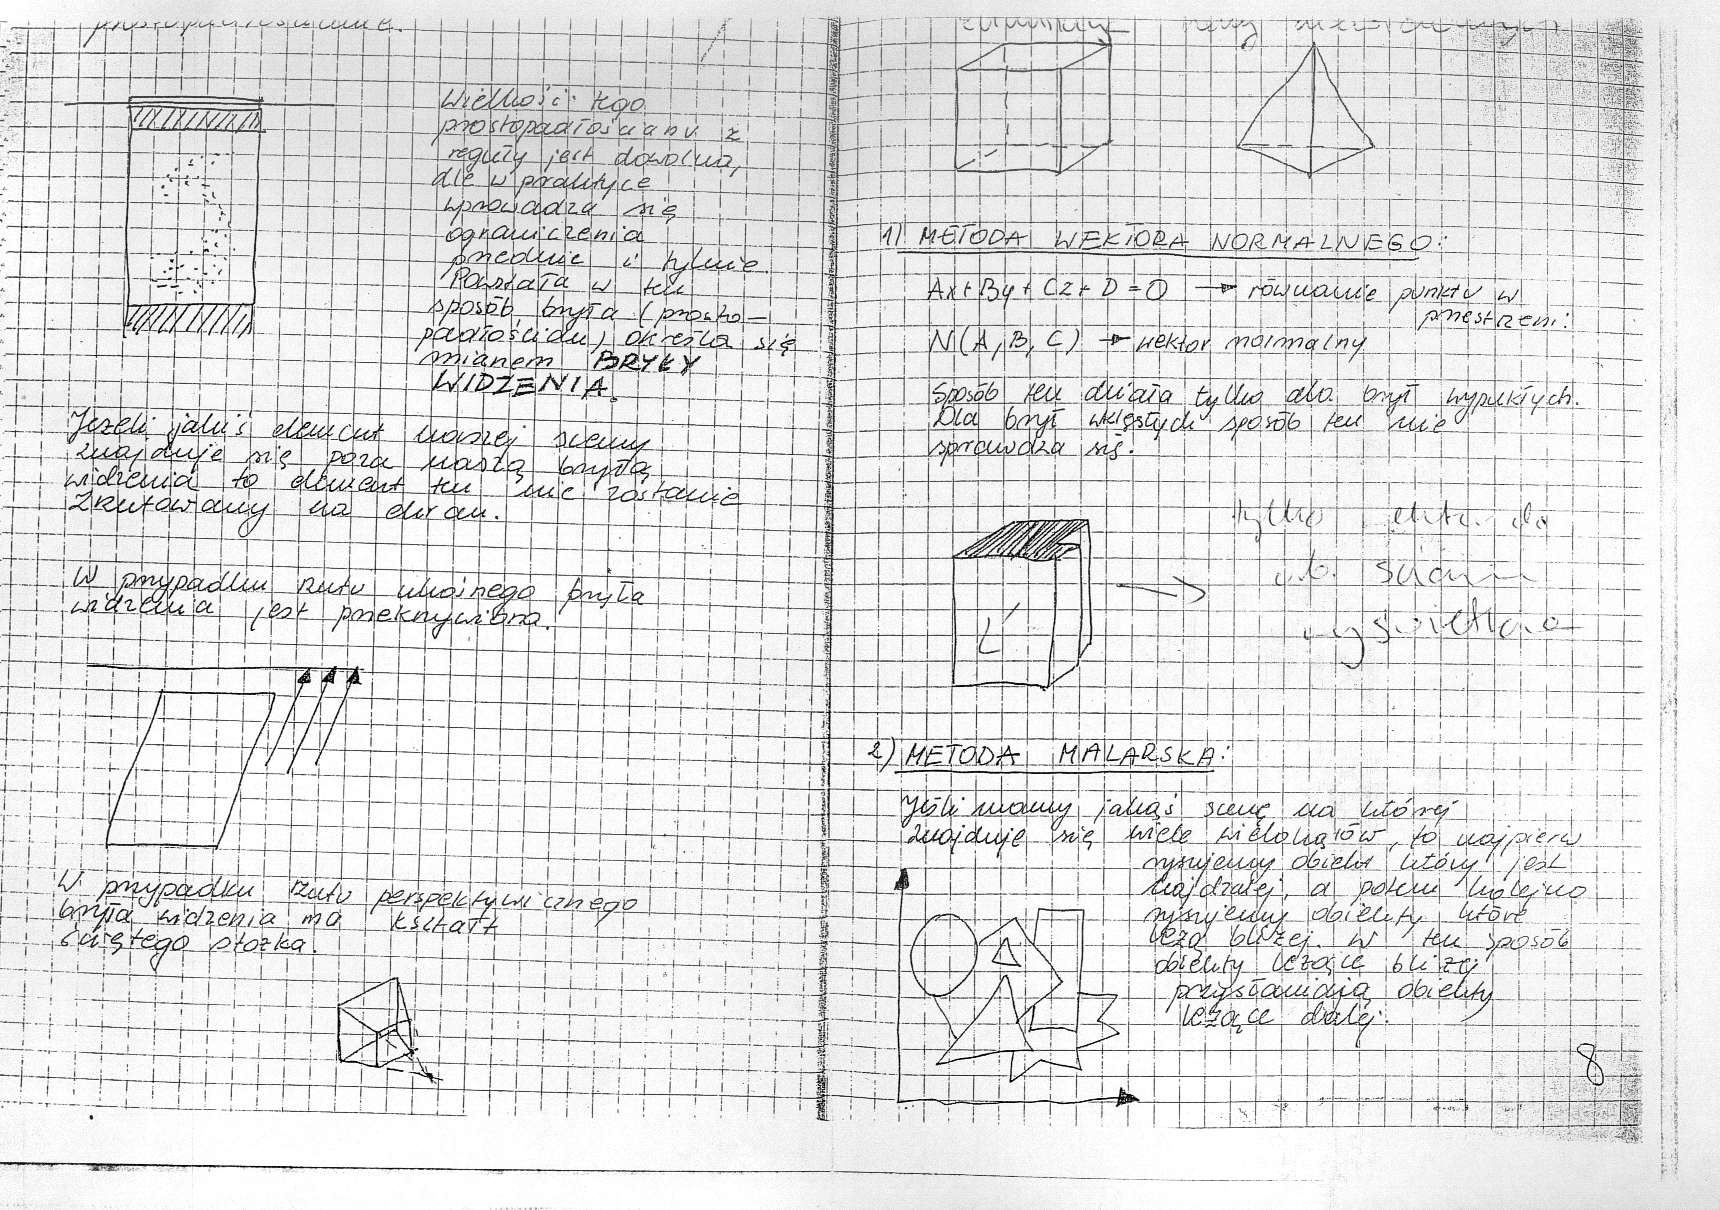 prostopadłościanie.
Wielkość tego
prostopadłościanu z
reguły jest dowolna,
ale w praktyce
wprowadza się
ograniczenia
przednie i tylnie.
Powstała w ten
sposób bryła (prosto-
padłościan) określa się
mianem BRYŁY
WIDZENIA.
Jeżeli jakiś element naszej sceny
znajduje się poza naszą bryłą
widzenia to element ten nie zostanie
zrzutowany na ekran.
W przypadku rzutu ukośnego bryła
widzenia jest przekrzywiona.
W przypadku rzutu perspektywicznego
bryła widzenia ma kształt
ściętego stożka.
1) METODA WEKTORA NORMALNEGO:
Ax+By+Cz+D=0 → równanie punktu w
przestrzeni:
N(A,B,C) → wektor normalny
Sposób ten działa tylko dla brył wypukłych.
Dla brył wklęsłych sposób ten nie
sprawdza się.
tylko
ścian
2) METODA MALARSKA:
Jeśli mamy jakąś scenę na której
znajduje się wiele wielokątów, to najpierw
rysujemy obiekt który jest
najdalej, a potem kolejno
rysujemy obiekty które
leżą bliżej. W ten sposób
obiekty leżące bliżej
przysłaniają obiekty
leżące dalej.
8